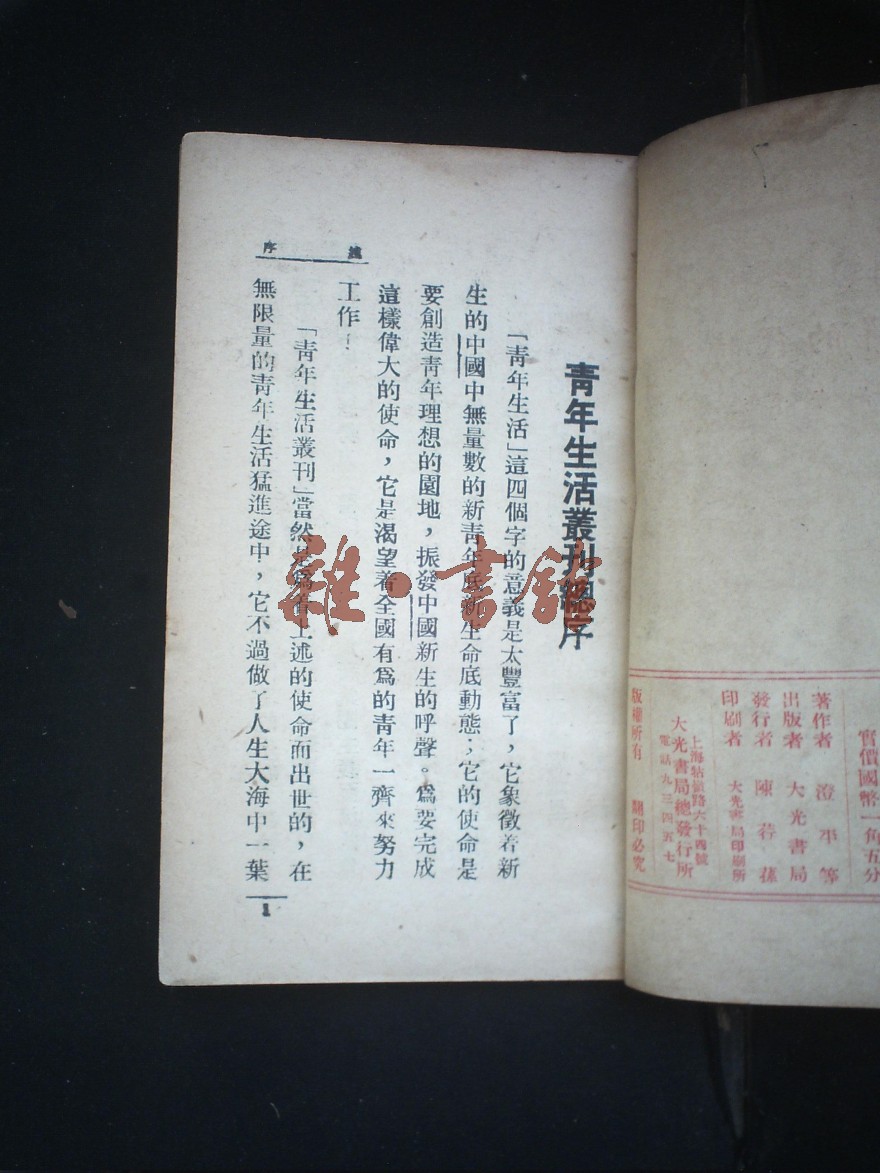 實價國幣一角五分
著作者 澄平等
出版者 大光書局
發行者 陳荇蓀
印刷者 大光書局印刷所
上海牯嶺路六十四號
大光書局總發行所
電話九三四五七
版權所有 翻印必究
青年生活叢刊總序
「青年生活」這四個字的意義是太豐富了，它象徵着新
生的中國中無量數的新青年底新生命底動態；它的使命是
要創造青年理想的園地，振發中國新生的呼聲。爲要完成
這樣偉大的使命，它是渴望着全國有爲的青年一齊來努力
工作！
「青年生活叢刊」當然是爲着上述的使命而出世的，在
無限量的青年生活猛進途中，它不過做了人生大海中一葉
總序
1
雜·書館